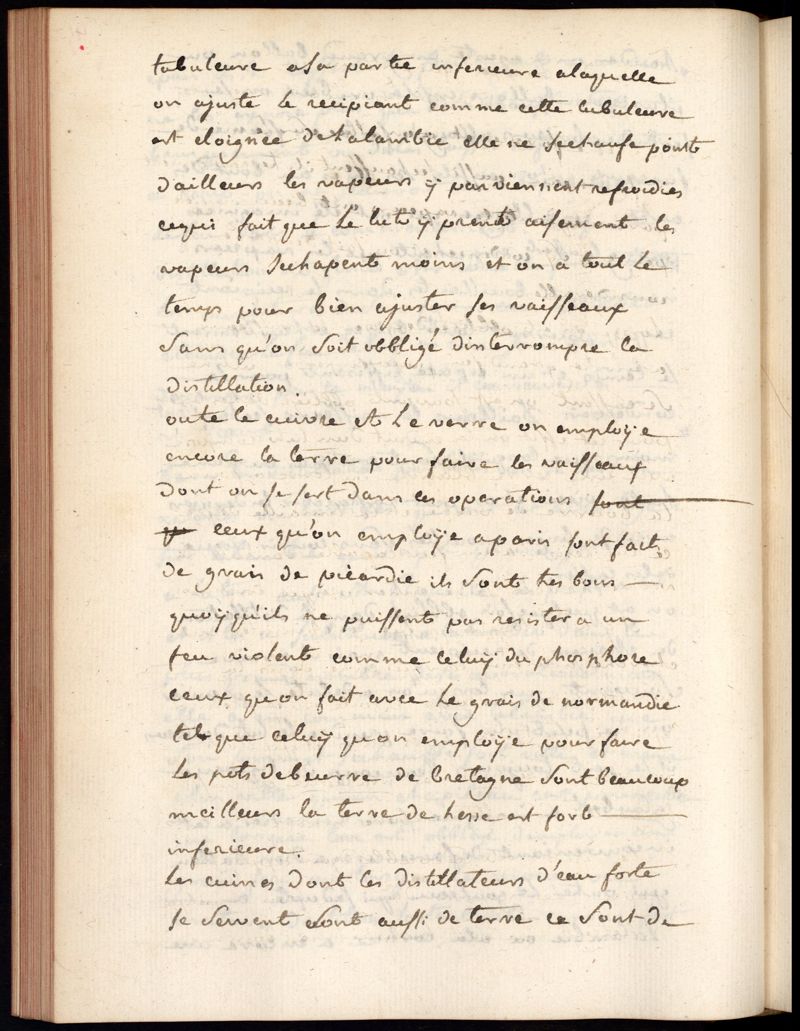 tubuleure a sa partie inferieure a laquelle
on ajuste le recipiant comme cette tubuleure
est eloignée de Lalambic elle ne Sechaufe point
d'ailleurs les vapeurs ÿ parviennent refroidies
cequi fait que Le lut ÿ prend aisement les
vapeurs Sechapent moins et on a tout Le
temps pour bien ajuster ses vaisseaux
Sans qu'on Soit obbligé dinterrompre la
distillation.
oute le cuivre et Le verre on employe
encore la terre pour faire les vaisseaux
dont on se sert dans ces operations sont
ceux qu'on employe a paris sont faits
de grais de picardie ils Sont tres bons
quoyqu'ils ne puissent pas resister a un
feu violent comme celuÿ du phosphore
ceux quon fait avec Le grais de normandie
tel que celuÿ quon employe pour faire
Les pots debeurre de bretagne Sont beaucoup
meilleurs la terre de hesse est fort
inferieure.
Les cuines dont les distillateurs d'eau forte
se Servent Sont aussi de terre ce Sont de